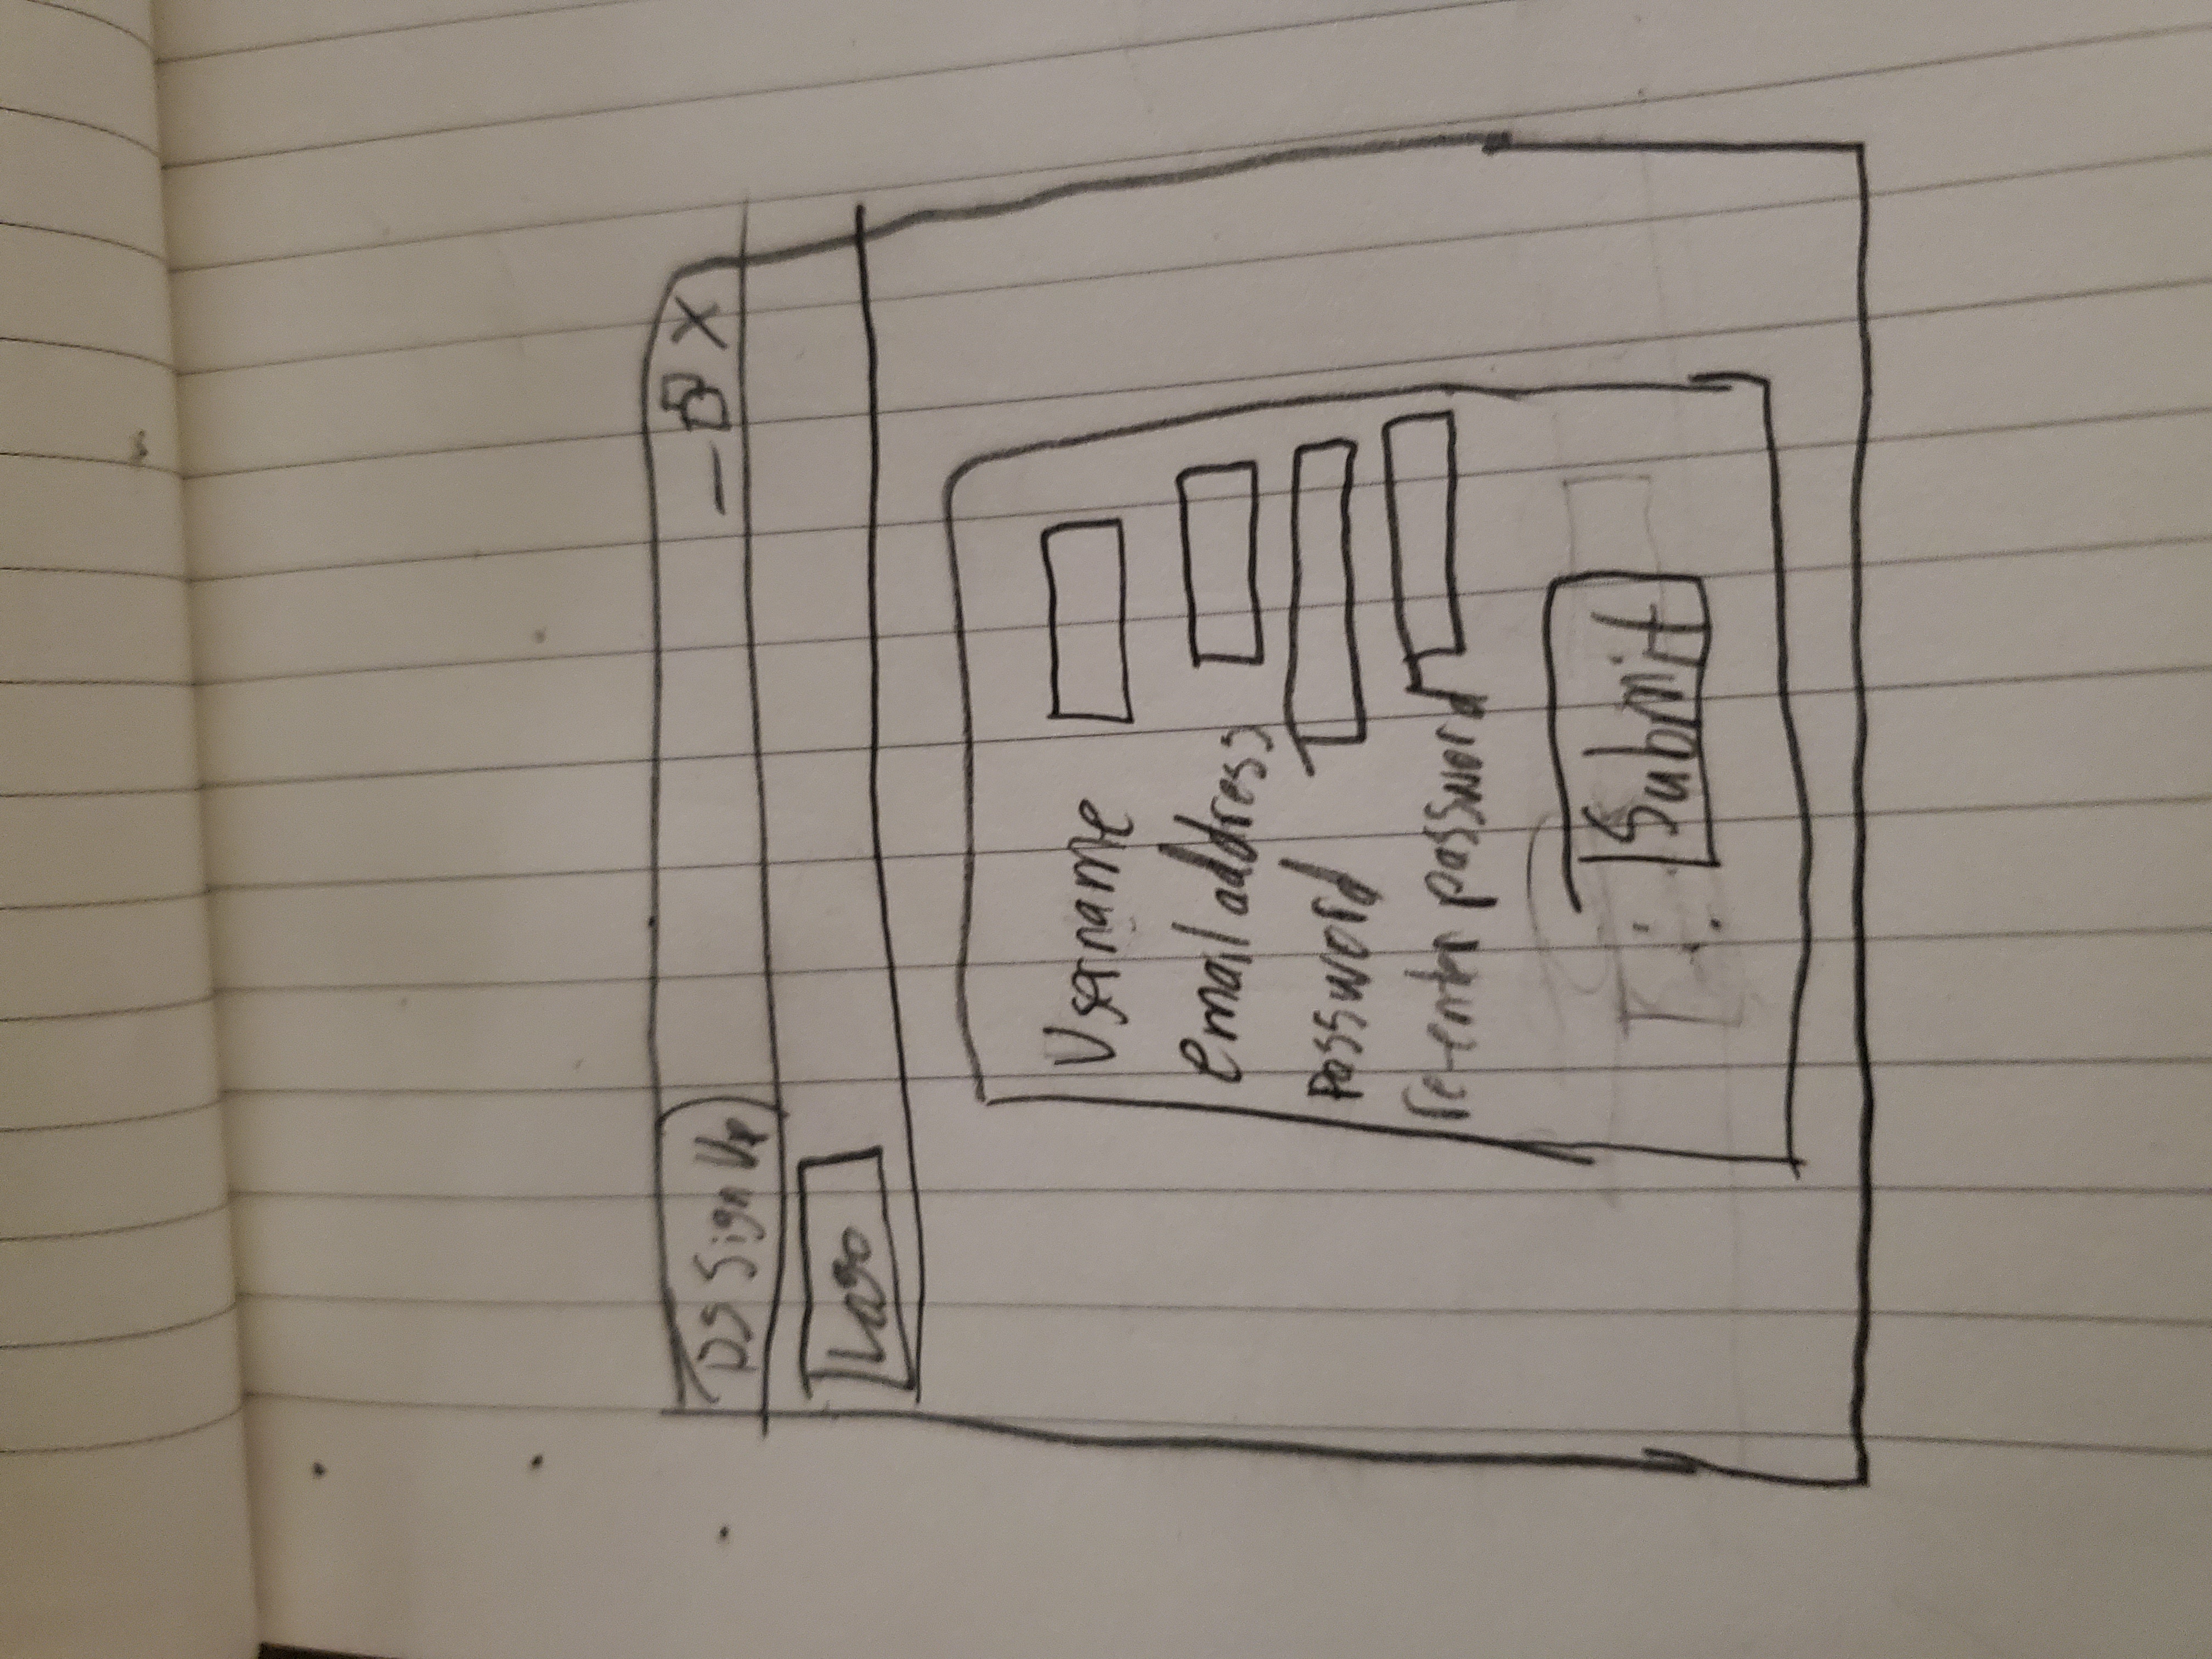 DS Sign Up
Logo
Username
email address
password
re-enter password
Submit